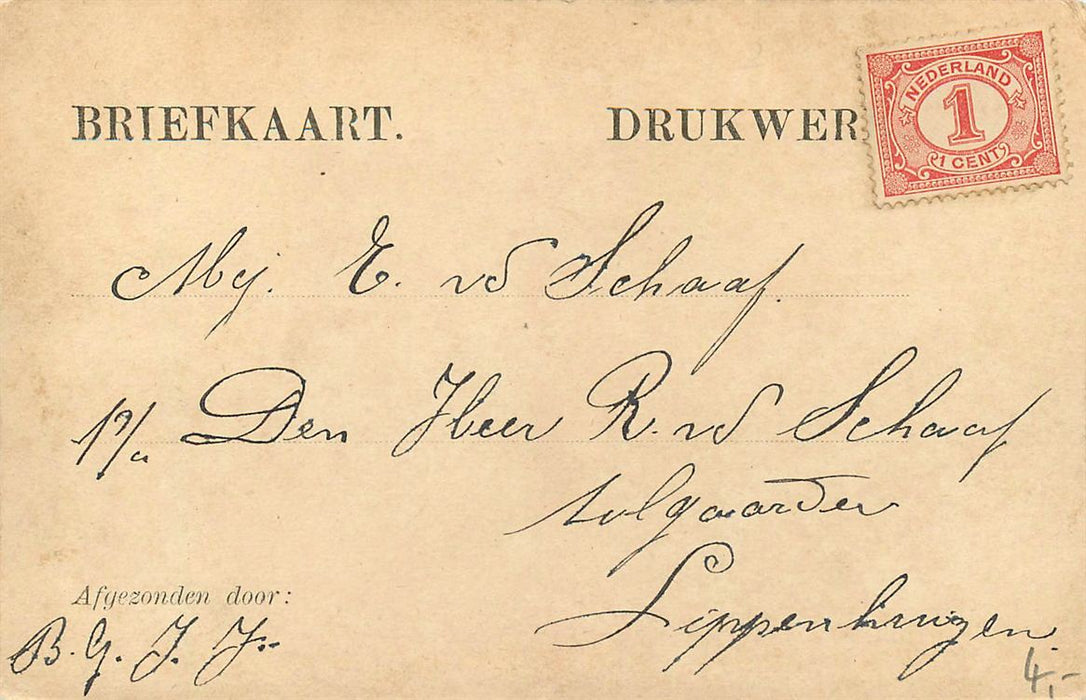 BRIEFKAART. DRUKWER
NEDERLAND
1
1 CENT
Mej. E. vd Schaaf.
p/a Den Heer R. vd Schaaf
tolgaarder
Lippenhuizen
Afgezonden door:
B. G. J. J.
4,-